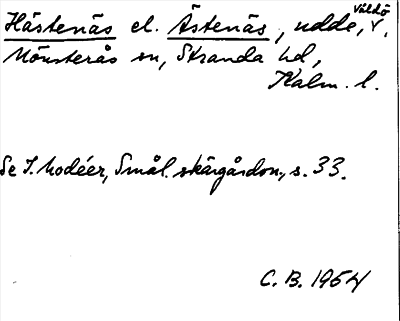 Hästenäs el. Ästenäs, udde, Väldö
Mönsterås sn, Stranda hd,
Kalm. l.
Se I. Modéer, Smål. skärgårdsn., s. 33.
C. B. 1954